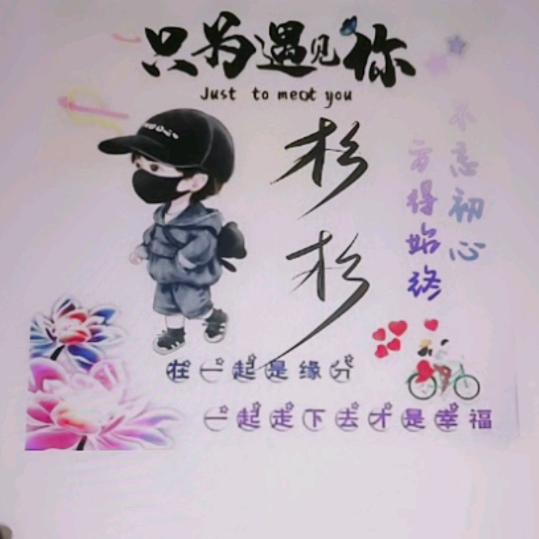 只为遇见你
Just to meet you
杉
杉
不忘初心
方得始终
在一起是缘分
一起走下去才是幸福